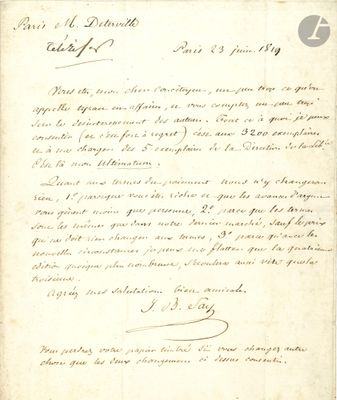 Paris M. Deterville
Paris 23 juin 1819
Vous êtes, mon cher concitoyen, un peu trop ce qu'on
appelle tyran en affaires, et vous comptez un peu trop
sur le désintéressement des auteurs. Tout ce à quoi je peux
consentir (et c'est à regret) c'est aux 3200 exemplaires
et à me charger des 5 exemplaires de la Direction de la
C'est là mon Ultimatum.
Quant aux termes du paiement nous n'y changerons
rien, 1.° parceque vous êtes riche et que les avances d'argent
vous gênent moins que personne, 2.° parce que les termes
sont les mêmes que dans notre dernier marché, sauf le prix
qui ne doit rien changer aux termes, 3.° parce qu'avec les
nouvelles circonstances je peux me flatter que la quatrième
édition quoique plus nombreuse, s'écoulera aussi vite que la
troisième.
Agréez mes salutations bien amicales.
J. B. Say
Vous perdrez votre papier timbré si vous changez autre
chose que les deux changemens ci dessus consentis.